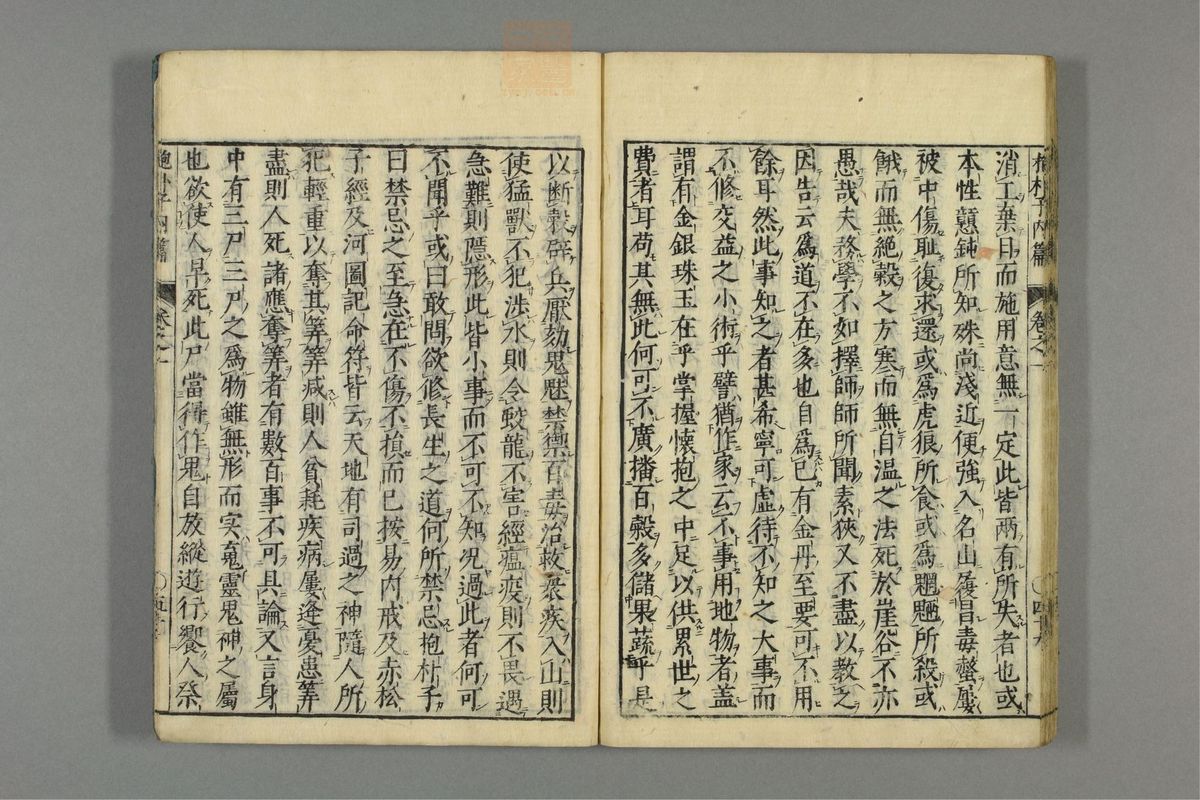 抱朴子内篇 卷之一 〇四十九
消工棄日而施用意無一定此皆兩有所失者也或
本性戇鈍所知殊尚淺近便強入名山履冒毒螫屢
被中傷耻復求還或爲虎狼所食或爲魍魎所殺或
餓而無絶穀之方寒而無自温之法死於崖谷不亦
愚哉夫務學不如擇師師所聞素狹又不盡以教之
因告云爲道不在多也自爲已有金丹至要可不用
餘耳然此事知之者甚希寧可虚待不知之大事而
不修交益之小術乎譬猶作家云不事用地物者盖
謂有金銀珠玉在乎掌握懷抱之中足以供累世之
費者耳苟其無此何可不廣播百穀多儲果蔬乎是
以断穀辟兵厭劾鬼魅禁禦百毒治救衆疾入山則
使猛獸不犯渉水則令蛟龍不害經瘟疫則不畏遇
急難則隱形此皆小事而不可不知况過此者何可
不聞乎或曰敢問欲修長生之道何所禁忌抱朴子
曰禁忌之至急在不傷不損而已按易内戒及赤松
子經及河圖記命符皆云天地有司過之神隨人所
犯輕重以奪其筭筭减則人貧耗疾病屢逢憂患筭
盡則人死諸應奪筭者有數百事不可具論又言身
中有三尸三尸之爲物雖無形而实䰟靈鬼神之屬
也欲使人早死此尸當得作鬼自放縱遊行饗人祭
抱朴子内篇